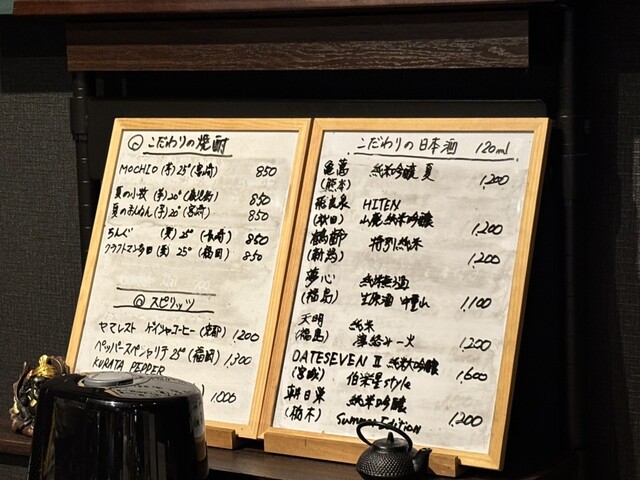 こだわりの焼酎
MOCHIO (芋) 25° (宮崎) 850
夏の小牧 (芋) 20° (鹿児島) 850
夏のまんねん (芋) 20° (宮崎) 850
ちんぐ (麦) 25° (長崎) 850
クラフトマン多田 (麦) 25° (福岡) 850
スピリッツ
ヤマレスト ゲイシャコーヒー (京都) 1,200
ペッパースペシャリテ 25° (福岡) 1,300
KURATA PEPPER
1,000
こだわりの日本酒 120ml
亀萬 純米吟醸 夏
(熊本) 1,200
飛良泉 HITEN
(秋田) 山廃純米吟醸 1,200
鶴齢 特別純米
(新潟) 1,200
夢心 純米無濾過
(福島) 生原酒 1,100
天明 純米
(福島) 火 1,200
DATESEVEN II 純米大吟醸
(宮城) 伯楽星style 1,600
朝日榮 純米吟醸
(栃木) Summer Edition 1,200